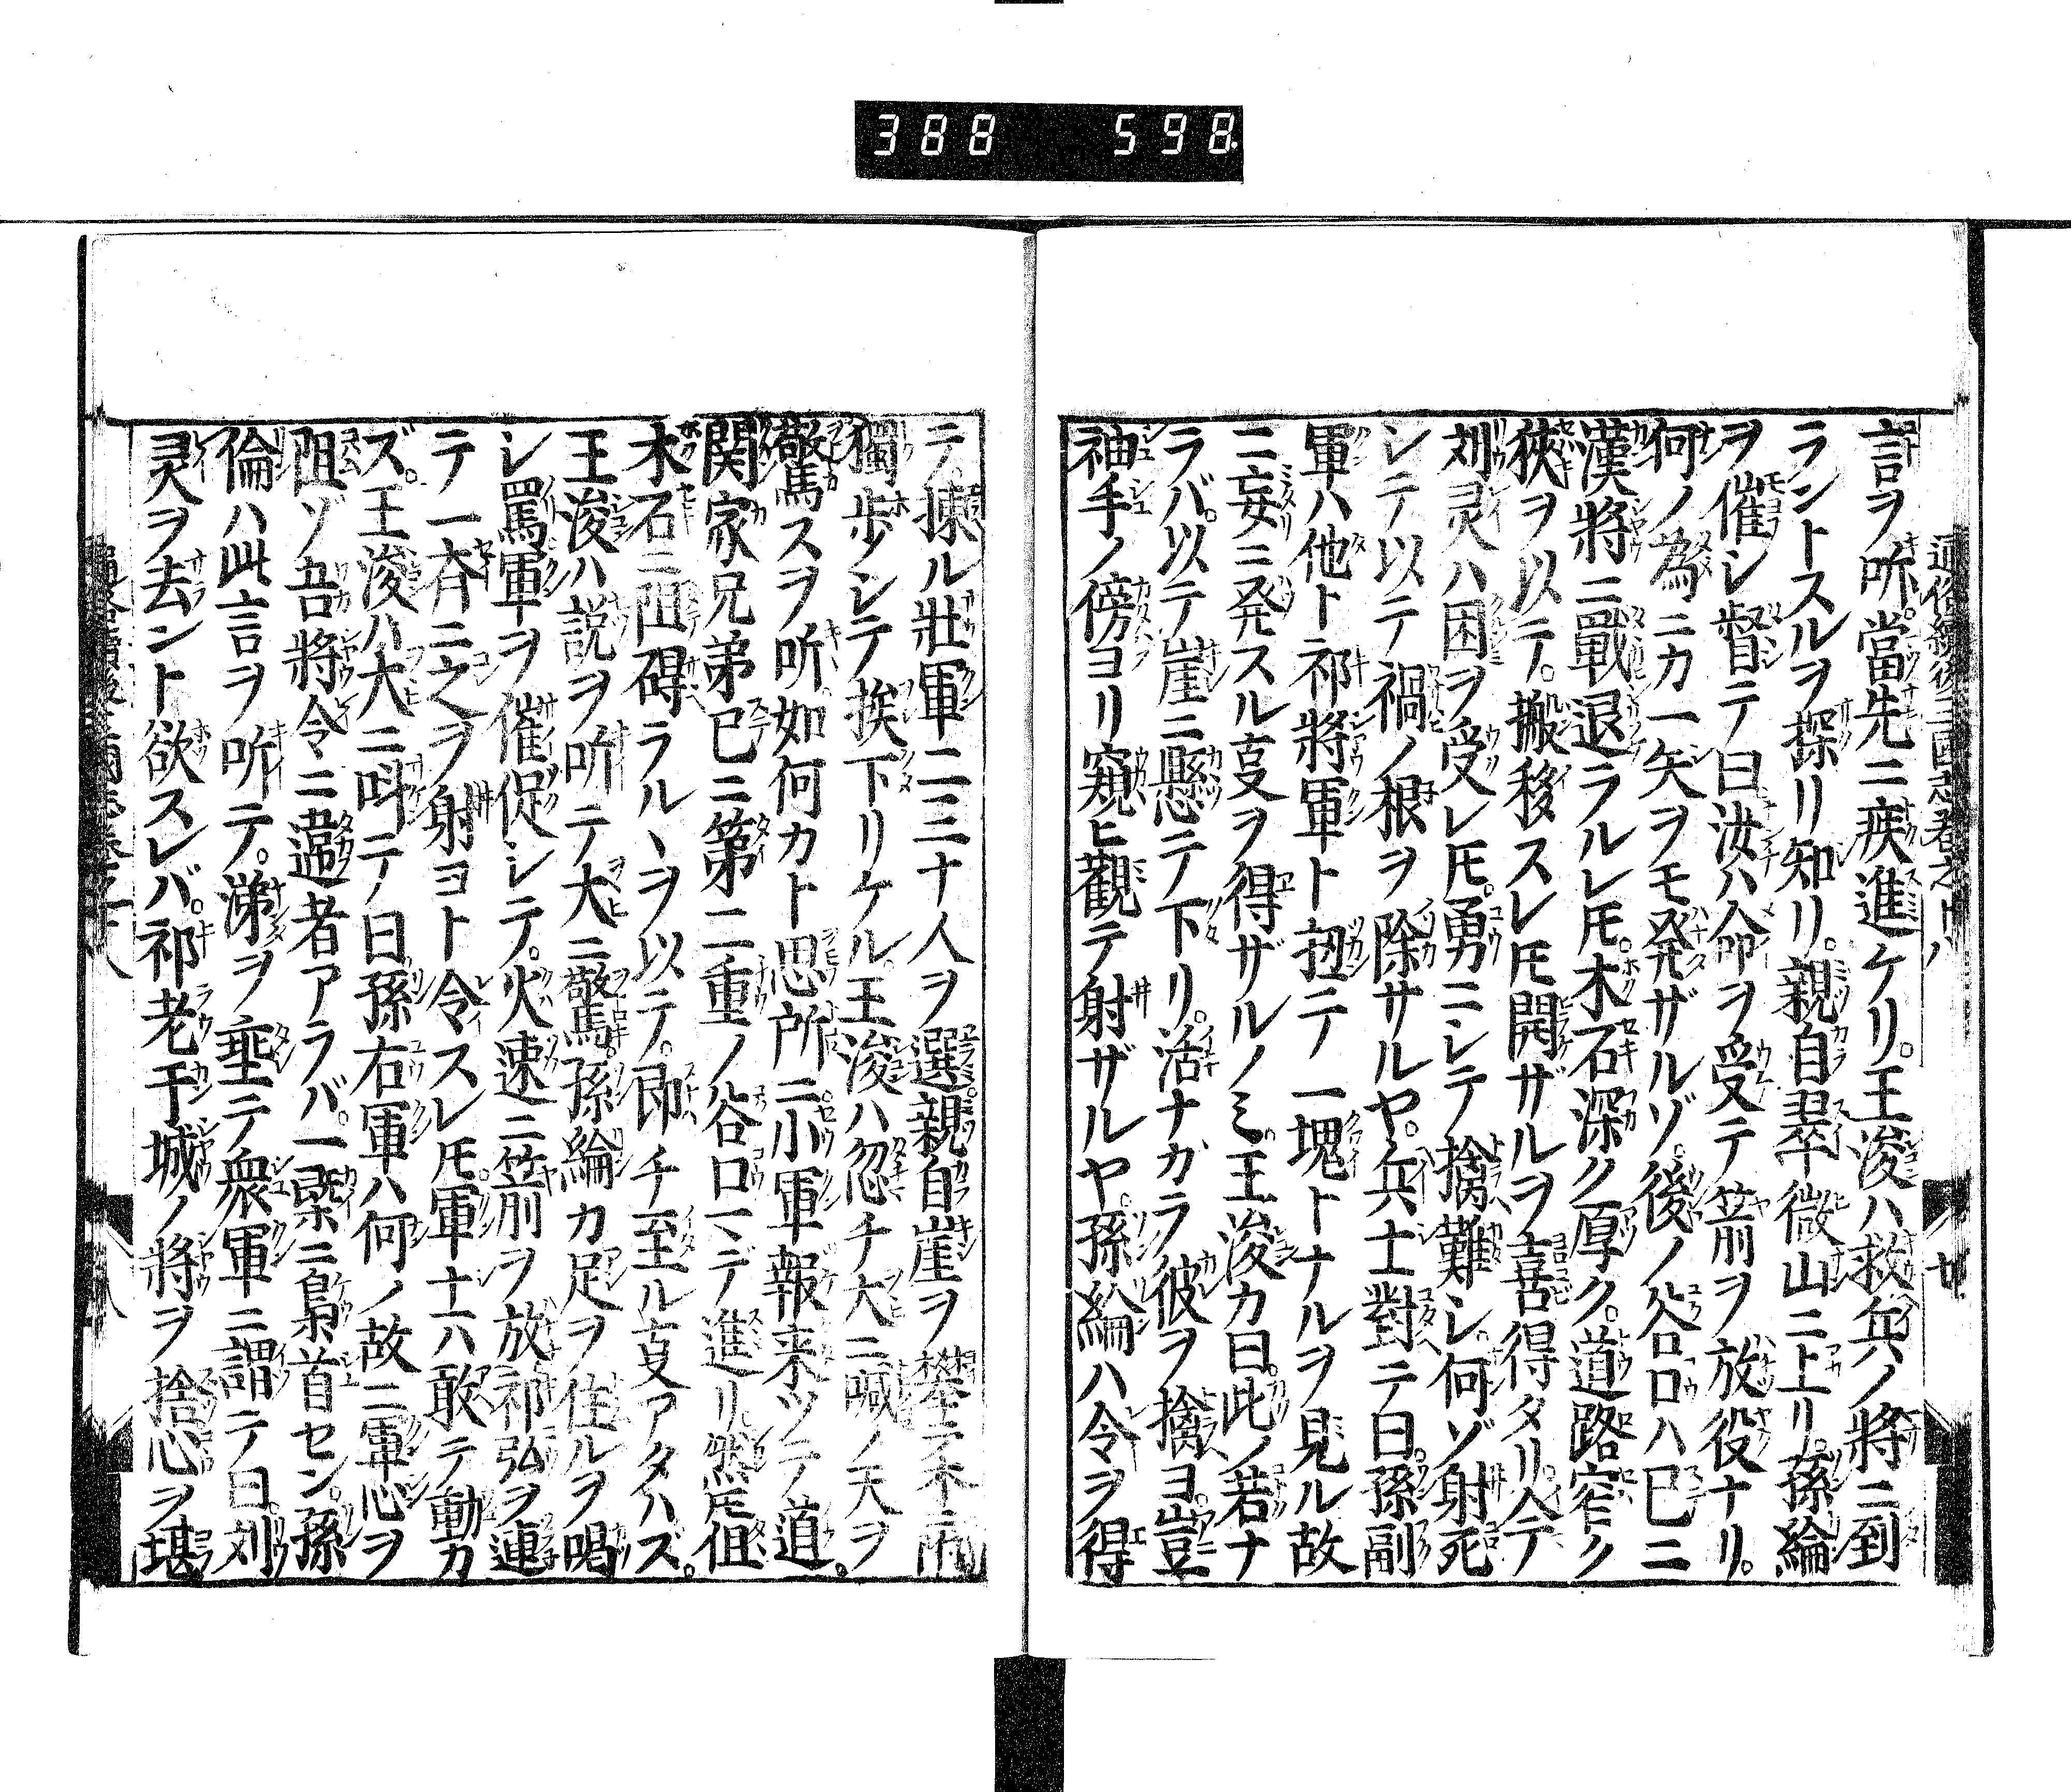 388 598
通俗續後三國志卷之十八 廿
言ヲ听當先ニ疾進ケリ。王浚ハ救兵ノ將ニ到
ラントスルヲ探リ知リ。親自翠微山ニ上リ。孫綸
ヲ催シ督テ曰汝ハ命ヲ受テ箭ヲ放役ナリ。
何ノ為ニカ一矢ヲモ発ザルゾ。後ノ谷口ハ已ニ
漢將ニ戰退ラルレ𪜈。木石深ク厚ク。道路窄ク
狹ヲ以テ。搬移スレ𪜈開ザルヲ喜得タリ今
刘灵ハ困ヲ受レ𪜈。勇ニシテ擒難シ。何ゾ射死
シテ以テ禍ノ根ヲ除サルヤ。兵士對テ曰。孫副
軍ハ他ト祁將軍ト扭テ一塊トナルヲ見ル故
ニ妄ニ発スル㕝ヲ得ザルノミ。王浚カ曰。此ノ若ナ
ラバ。以テ崖ニ懸テ下リ。活ナカラ彼ヲ擒ヨ豈
袖手ノ傍ヨリ窺ヒ觀テ射ザルヤ。孫綸ハ令ヲ得
テ。揀ル壯軍二三十人ヲ選親自崖ヲ攀
獨歩ノシテ挨下リケル。王浚ハ忽チ大ニ喊ノ天ヲ
驚スヲ听。如何カト思所ニ小軍報来ツテ道。
関家兄弟已ニ第二重ノ谷口マデ進リ。然𪜈但
木石ニ阻碍ラルヽヲ以テ。即チ至ル㕝アタハズ。
王浚ハ説ヲ听テ大ニ驚。孫綸カ足ヲ住ルヲ喝
シ罵軍ヲ催促シテ。火速ニ箭ヲ放祁弘ヲ連
テ一斉ニ之ヲ射ヨト令スレ𪜈軍士ハ敢テ動カ
ズ。王浚ハ大ニ呌テノ曰孫右軍ハ何ノ故ニ軍心ヲ
阻ゾ吾將令ニ違者アラバ。一槩ニ梟首セン。孫
倫ハ此言ヲ听テ。涕ヲ垂テ衆軍ニ謂テノ曰。刘
灵ヲ去ント欲スレバ。祁老干城ノ將ヲ捨心ヲ堪